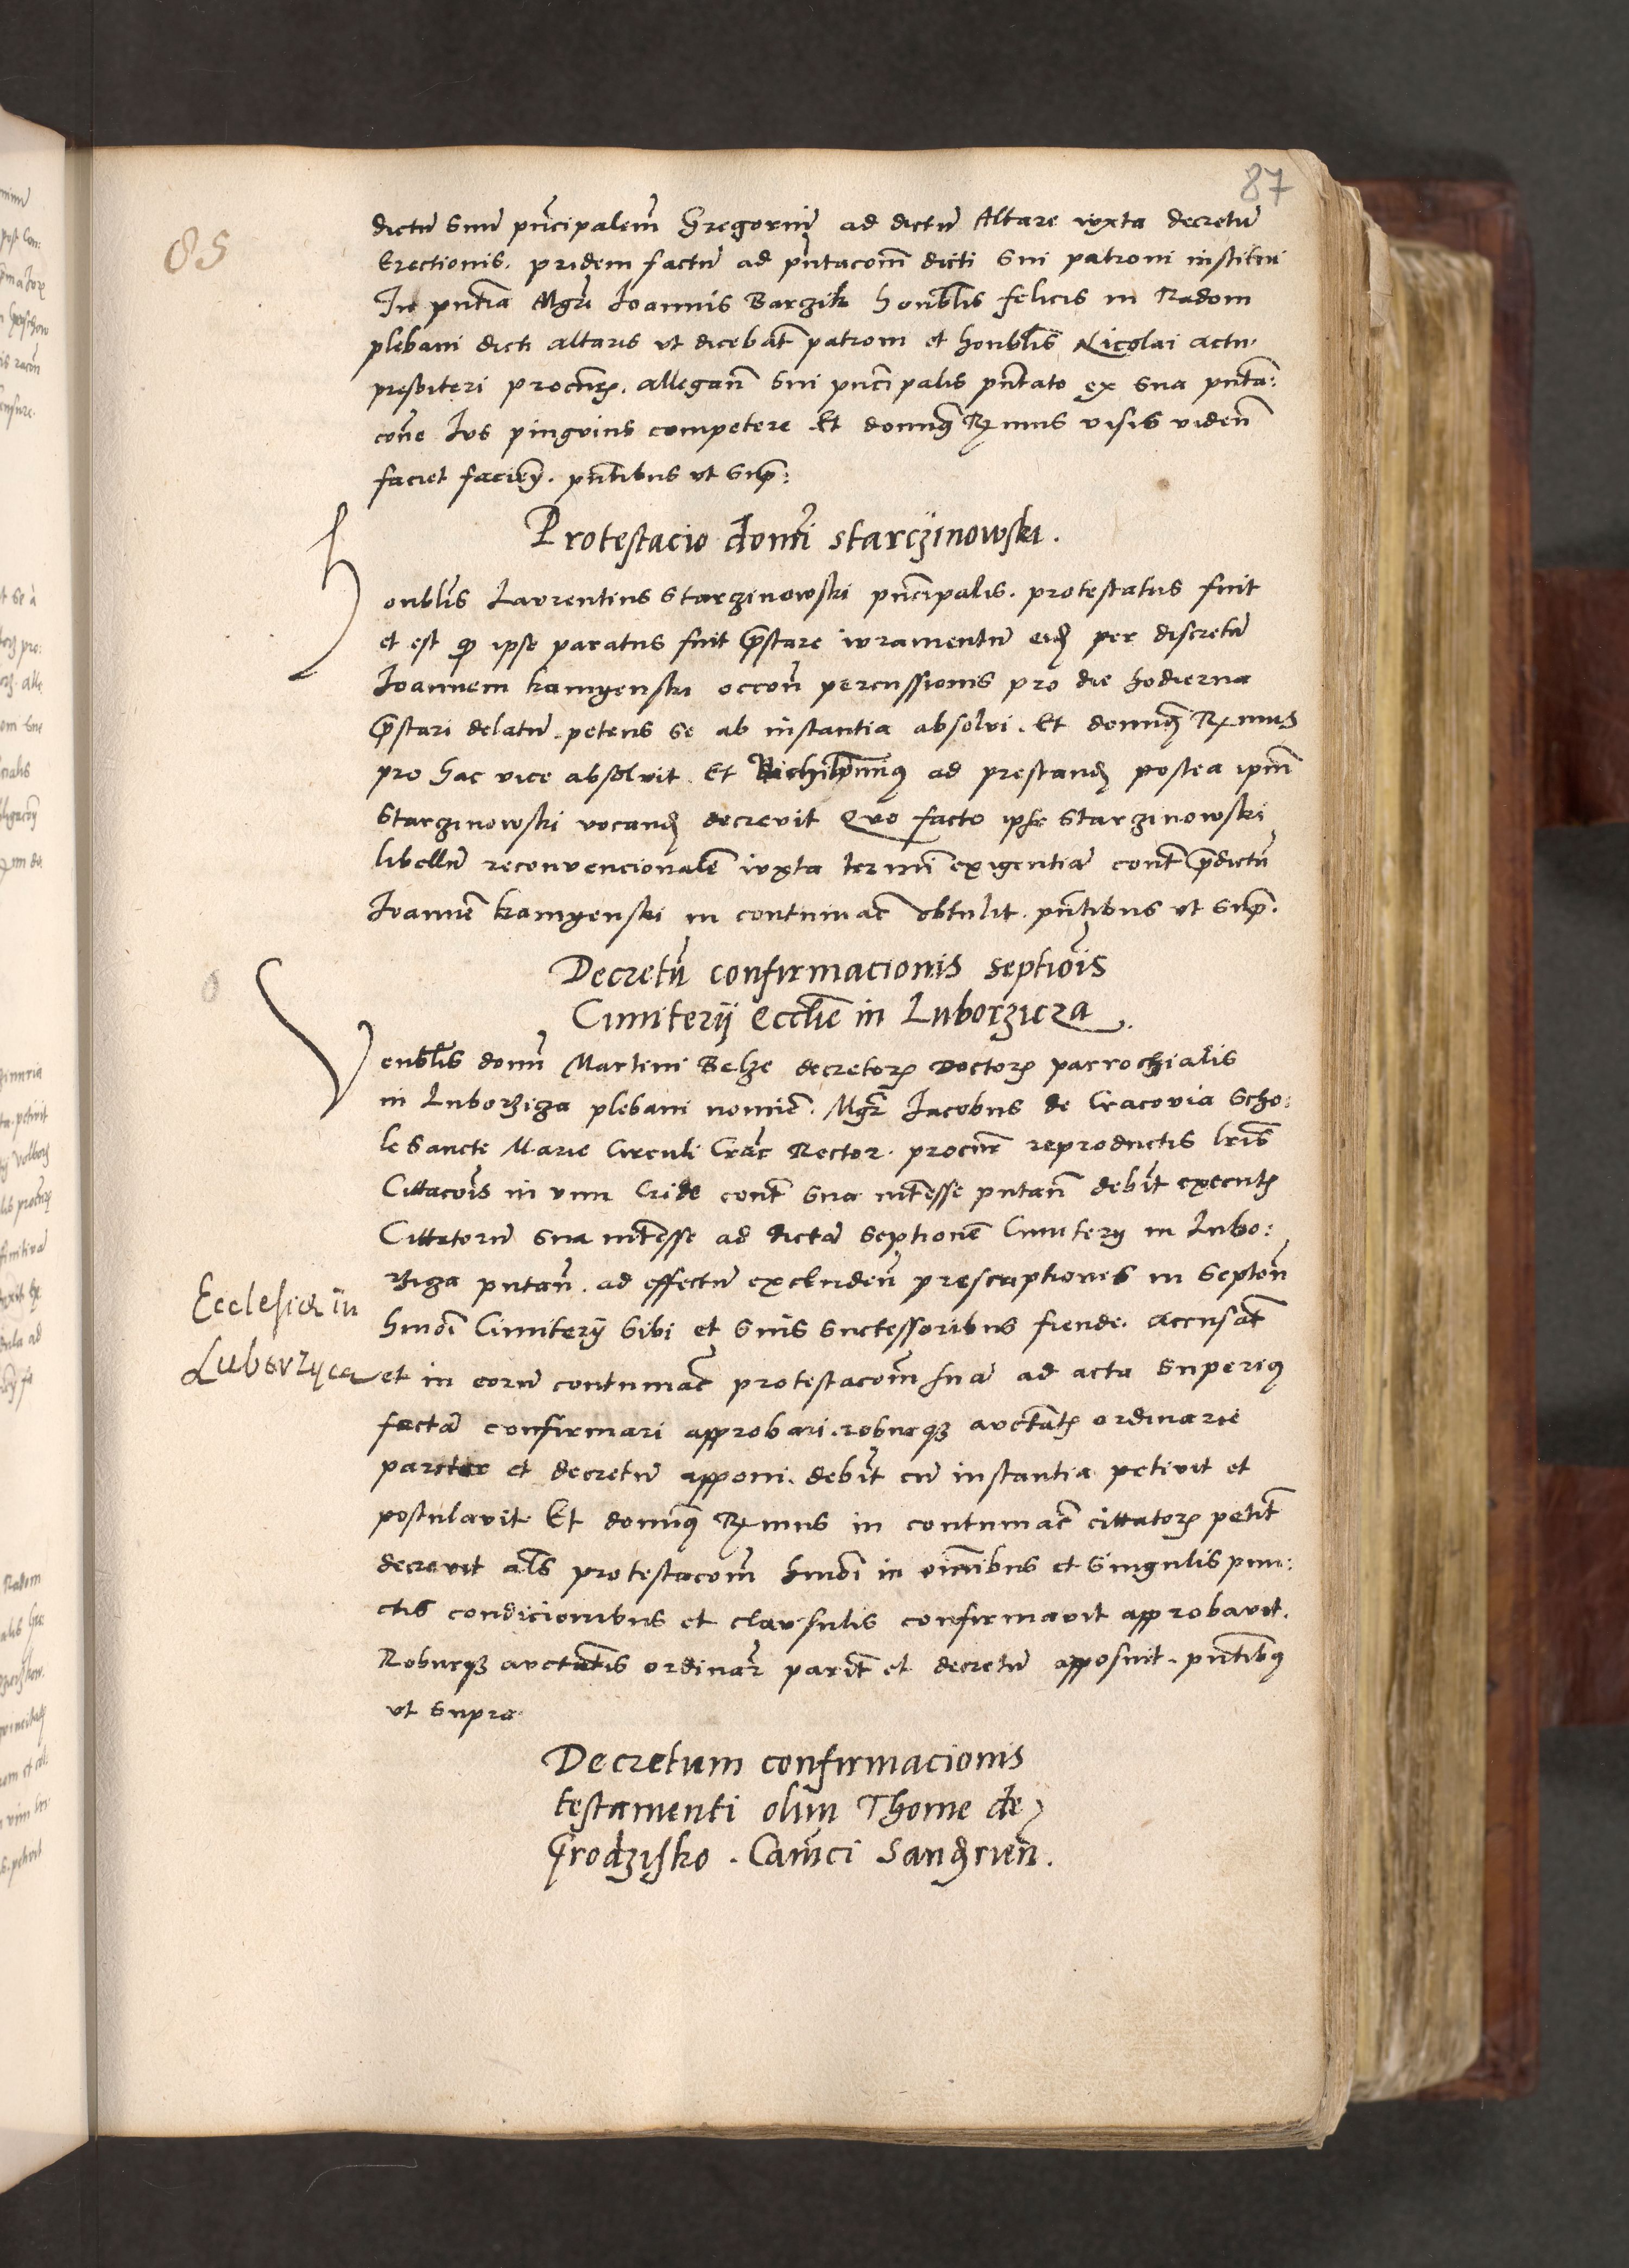 87
85
dictū suū pn̄cipalem̄ Gregoriū ad dictū Altare iuxta decretū
Erectionis. pridem factū ad pn̄tacom̄ dicti sui patroni institui
In pn̄tia Mgrī Joannis Barzik honbl̄is felicis in Radom
plebani dicti altaris ut dicebat̄ patroni et honbl̄is Nicolai actu.
presbiteri procur̄. allegan̄ sui pn̄cipalis pn̄tato ex sua pn̄ta:
cōne Ius pinguius competere Et domin9 Rx̄mus visis viden̄
faciet facien̄. pn̄tibus ut sup̄:
Protestacio domī̄ starczinowski.
Honbl̄is Laurentius Starzinowski pn̄cipalis. protestatus fuit
et est qȝ ipse paratus fuit p̄stare iuramentū eid̄ per discretū
Joannem kamyenski occon̄ percussionis pro die hodierna
p̄stari delatū. petens se ab instantia absolvi. Et domin9 Rx̄mus
pro hac vice absolvit. Et Nichil̄omin9 ad prestand̄ postea ipm̄
Starzinowski vocand̄ decrevit Quo facto ipse Starzinowski
libellū reconvencionalē iuxta termī exigentiā cont̄ p̄dictū
Joannē kamyenski in contumac̄ obtulit. pn̄tibus ut sup̄.
Decretū confirmacionis septiōis
Cimiterij Eccl̄ie in Luborzicza.
Venbl̄is domī Martini Belze decretor̄ doctor̄ parrochialis
in Luborziza plebani nomīe. Mgr̄ Jacobus de Cracovia Scho:
le Sancte Marie Circuli Crac̄ Rector. procur̄ reproductis lrīs
Cittacōis in vim Cride cont̄ sua int̄esse putan̄ debīt executȝ
Cittatorū sua int̄esse ad dictā septionē Cimiterij in Lubo:
rziza putan̄. ad effectū excludeū prescriptiones in septōn̄
hmōi Cimiterij sibi et suis successoribus fiende. accusat̄
Ecclesiæ in
Luborzÿca
et in eorū contumac̄ protestacom̄ suā ad acta superi9
factā confirmari approbari. roburqȝ auctat̄ȝ ordinarie
pariter et decretū apponi. debīt cū instantia petivit et
postulavit. Et domin9 Rx̄mus in contumac̄ cittator̄ petit̄
decrevit al̄s protestacom̄ hmōi in oīnibus et singulis pun:
ctis condicionibus et clausulis confirmavit approbavit.
Roburqȝ auctatīs ordinar̄ parit̄ et decretū apposuit. pn̄tib9
ut supra
Decretum confirmacionis
testamenti olim Thome de
Grodzisko. Can̄ci Sand̄rien̄.